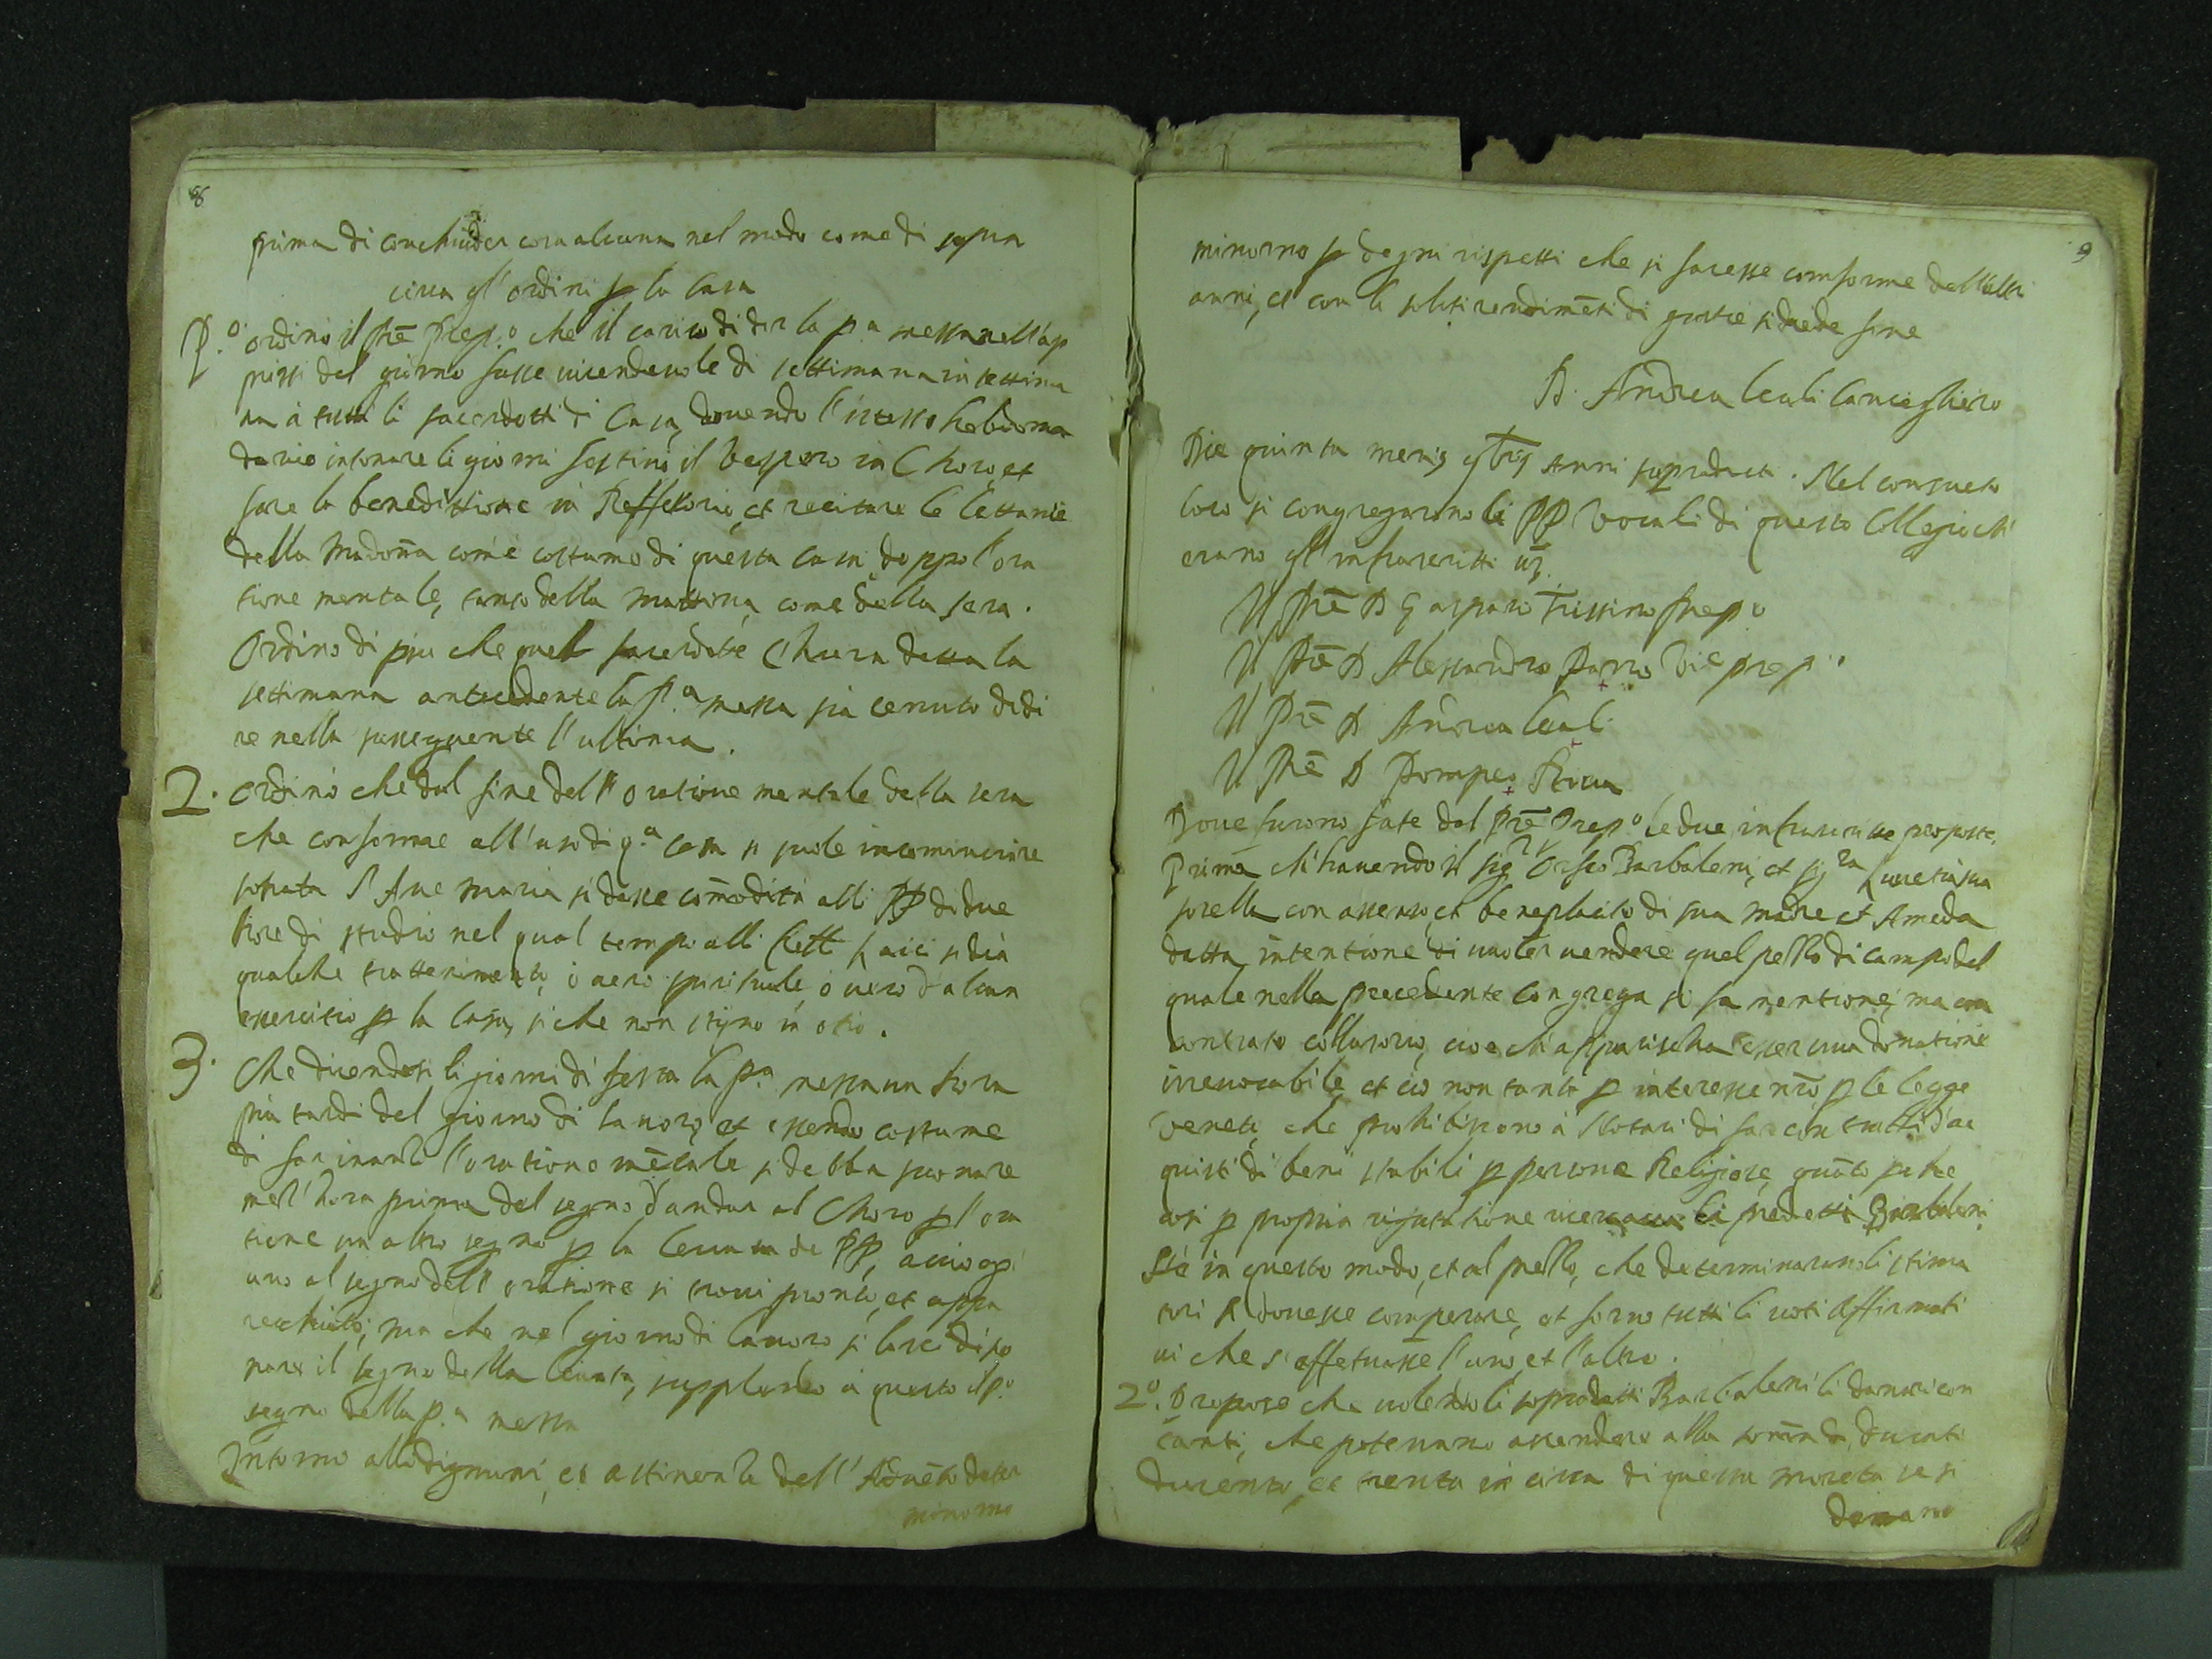 8
prima di conchiuder cosa alcuna nel modo come di sopra
circa gl'ordini p la Casa
P.º ordinò il Prē Prep.º che il carico di dir la p.a messa nell'ap
prissi del giorno fusse vicendevole di settimana in settima
na à tutti li sacerdotti di Casa, dovendo l'istesso hebdoma
dario intonare li giorni festivi il Vespero in Choro, et
fare la benedittione in Reffettorio, et recitare le lettanie
della Madoña com'è costume di questa casa, doppo l'ora
tione mentale, tanto della mattina, come della sera.
Ordinò di piu che quel sacerdote c'havrà detta la
settimana antecedente la p.a messa sia tenuto di di
re nella susseguente l'ultima.
2. Ordinò che dal fine dell'oratione mentale della sera
che conforme all'uso di q.a casa si suole incominciare
sonata l'Ave Maria si desse com̄odità alli PP di due
hore di studio nel qual tempo alli frett laici si dia
qualche trattenimento, ò vero spirituale, ò vero d'alcun
essercitio p la Casa, si che non stijno in otio.
3. Che dicendosi li giorni di festa la p.a messa un hora
più tardi del giorno di lavoro, et essendo costume
di far inanti l'oratione mētale si debba suonare
mez'hora prima del segno d'andar al Choro p l'ora
tione un altro segno p la levata de PP, acciò ogn'
uno al segno dell'oratione si trovi pronto, et appa
recchiato; ma che nel giorno di lavoro si lasci di so
nare il segno della levata, supplendo à questo il p.º
segno della p.a messa
Intorno alli digiuni, et astinenza dell'Advēto deter
minorno
9
minorno p degni rispetti che si facesse comforme dell'altri
anni, et con li soliti rendimēti di gratie si diede fine
D. Andrea Leali Cancegliero
Die quinta mensis Anni supradicti. Nel consueto
loco si congregarono li PP Vocali di questo Collegio ch'
erano gl'infrascritti uz.
Il Prē D Gasparo Trissino Prep.º
Il Prē D Alessandro Porro Vic prep.º
Il Prē D Andrea Leali
Il Prē D Pompeo
Dove furono fate dal Prē Prep.º le due infrascritte proposte.
Prima ch'havendo il sig.r Orfeo Barbaleni, et sig.ra Lucretia sua
sorella con assenso, et beneplacito di sua madre et Ameda
datta intentione di voler vendere quel pezzo di campo del
quale nella precedente Congrega si fa mentione, ma con
contrato collusorio, cioe ch'apparischa esser una donatione
irrevocabile, et ciò non tanto p interesse nr̄o p le legge
Venete, che prohibiscono à Notari di far contratti d'ac
quisti di beni stabili p persone Religiose, quāto
così p propria li predetti Barbaleni.
Se in questo modo, et al prezzo, che determinaranno li stima
tori si dovesse comperare, et forno tutti li voti affirmati
vi che s'effetuasse l'uno, et l'altro.
2º. Propose che volendo li sopradetti Barbaleni li danari con
tanti, che potevano assendere alla som̄a da ducati
ducento, et trenta in circa di questa moneta se si